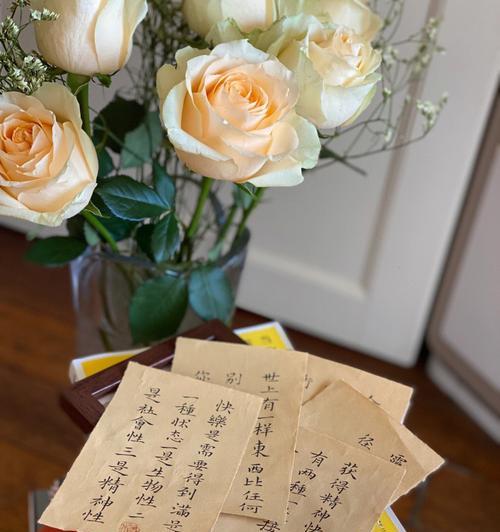 快樂是需要得到滿足
一種状态一是生物性二
是社會性三是精神性
世上有一样東西比任何
别
你
獲得精神快
有两種